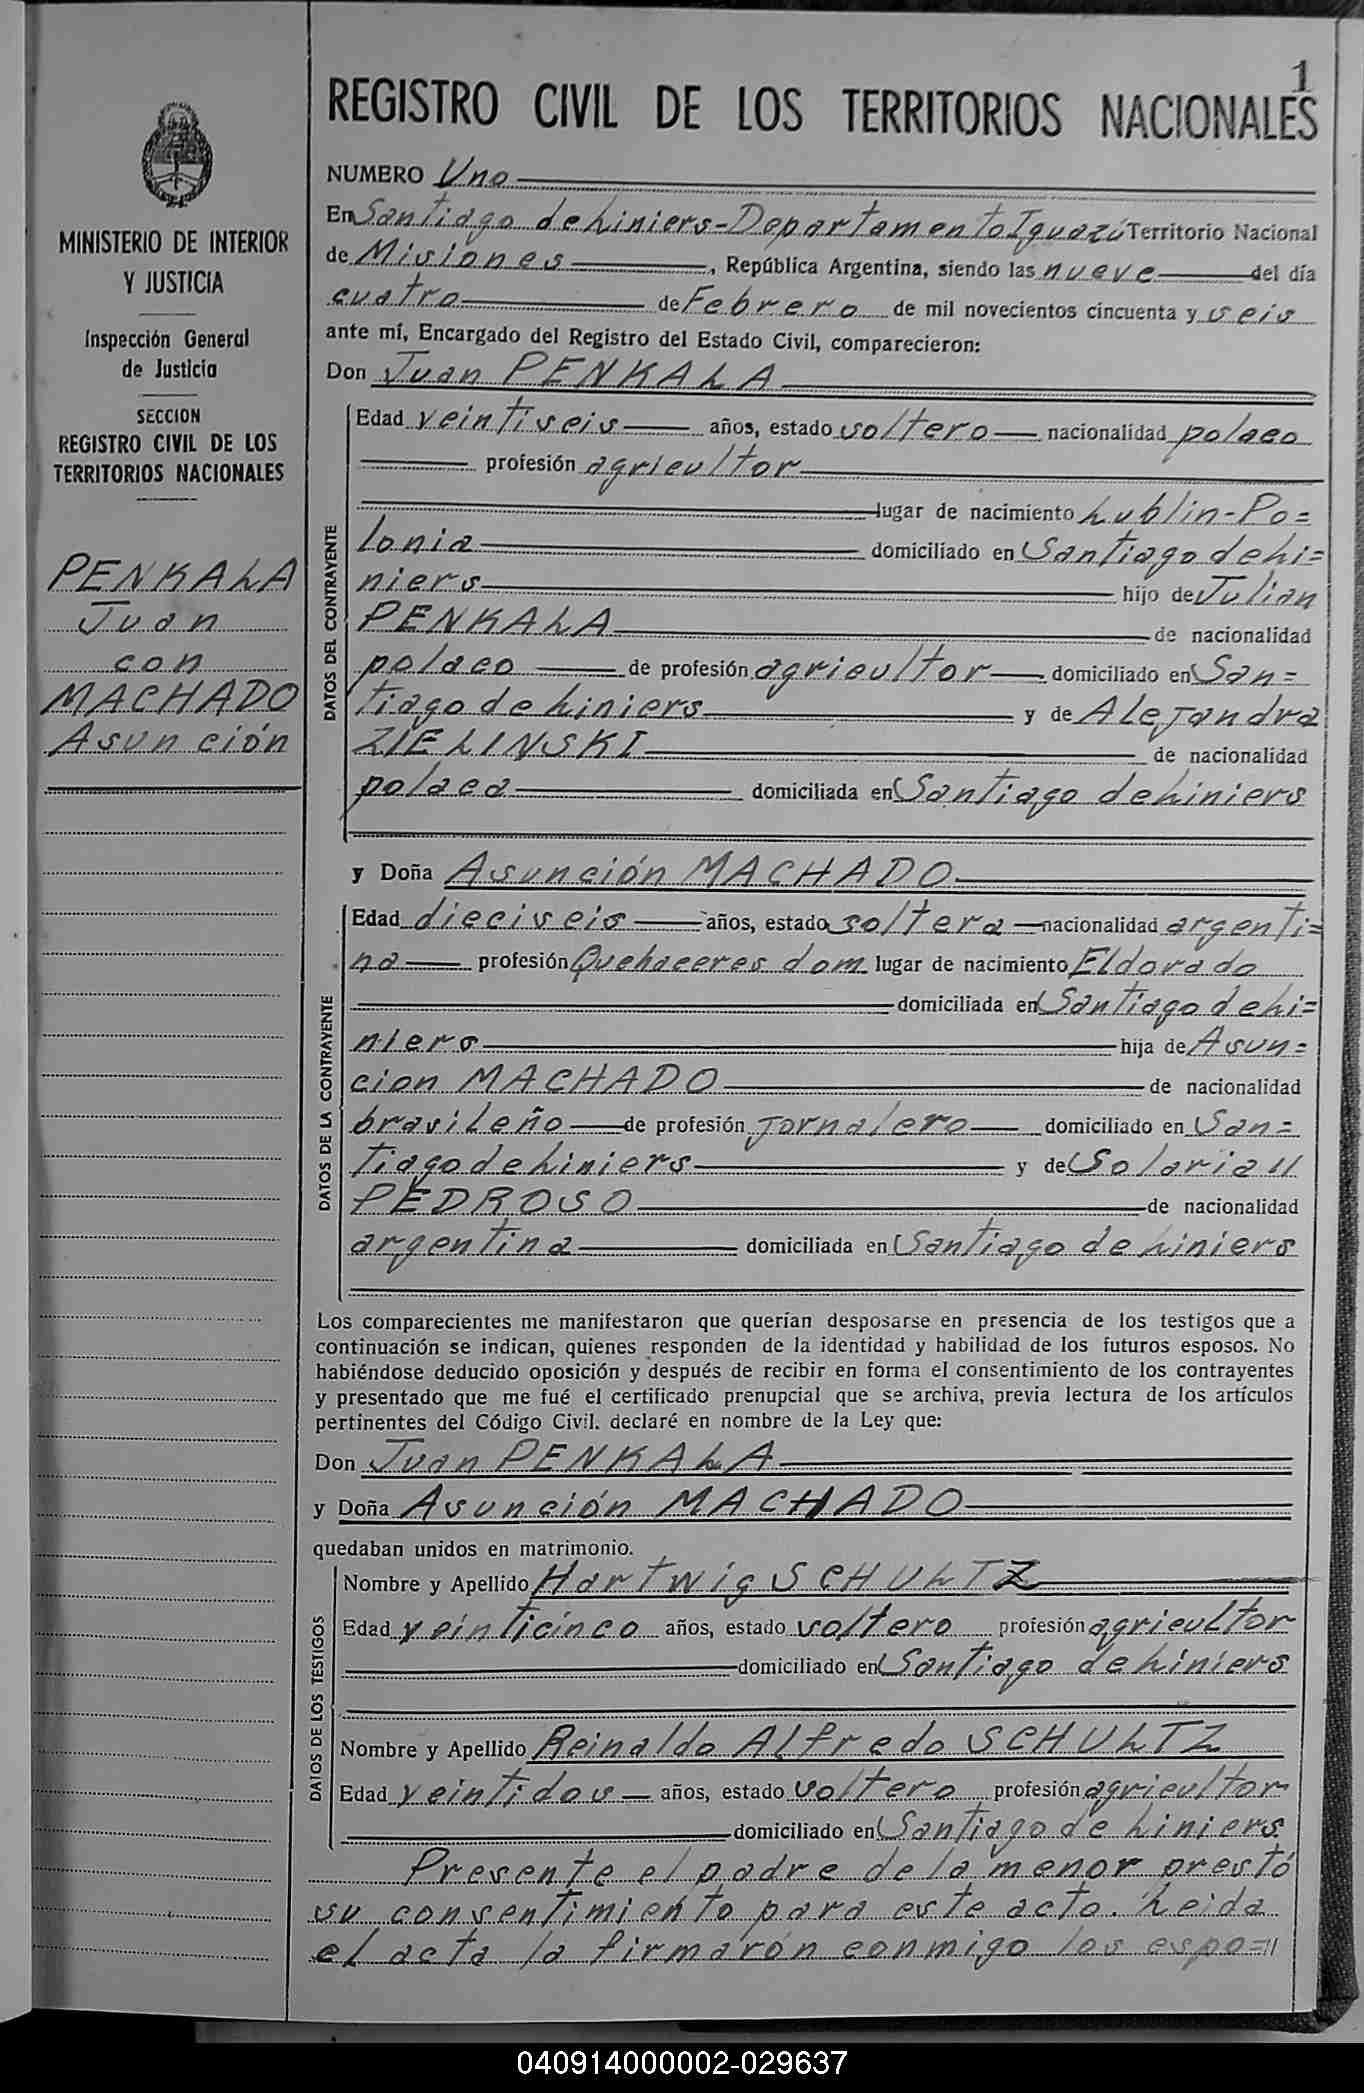 1
REGISTRO CIVIL DE LOS TERRITORIOS NACIONALES
MINISTERIO DE INTERIOR
Y JUSTICIA
Inspección General
de Justicia
SECCION
REGISTRO CIVIL DE LOS
TERRITORIOS NACIONALES
PENKALA
Juan
con
MACHADO
Asunción
NUMERO Uno
En Santiago de Liniers-Departamento Iguazú Territorio Nacional
de Misiones, República Argentina, siendo las nueve del día
cuatro de Febrero de mil novecientos cincuenta y seis
ante mí, Encargado del Registro del Estado Civil, comparecieron:
Don Juan PENKALA
DATOS DEL CONTRAYENTE
Edad veintiseis años, estado soltero nacionalidad polaco
profesión agricultor
lugar de nacimiento Lublin-Po=
lonia domiciliado en Santiago de Li=
niers hijo de Julian
PENKALA de nacionalidad
polaco de profesión agricultor domiciliado en San=
tiago de Liniers y de Alejandra
ZIELINSKI de nacionalidad
polaca domiciliada en Santiago de Liniers
y Doña Asunción MACHADO
DATOS DE LA CONTRAYENTE
Edad dieciseis años, estado soltera nacionalidad argenti=
na profesión Quehaceres dom. lugar de nacimiento Eldorado
domiciliada en Santiago de Li=
niers hija de Asun=
cion MACHADO de nacionalidad
brasileño de profesión jornalero domiciliado en San=
tiago de Liniers y de Solaria //
PEDROSO de nacionalidad
argentina domiciliada en Santiago de Liniers
Los comparecientes me manifestaron que querían desposarse en presencia de los testigos que a
continuación se indican, quienes responden de la identidad y habilidad de los futuros esposos. No
habiéndose deducido oposición y después de recibir en forma el consentimiento de los contrayentes
y presentado que me fué el certificado prenupcial que se archiva, previa lectura de los artículos
pertinentes del Código Civil. declaré en nombre de la Ley que:
Don Juan PENKALA
y Doña Asunción MACHADO
quedaban unidos en matrimonio.
DATOS DE LOS TESTIGOS
Nombre y Apellido Hartwig SCHULTZ
Edad veinticinco años, estado soltero profesión agricultor
domiciliado en Santiago de Liniers
Nombre y Apellido Reinaldo Alfredo SCHULTZ
Edad veintidos años, estado soltero profesión agricultor
domiciliado en Santiago de Liniers.
Presente el padre de la menor prestó
su consentimiento para este acto. Leida
el acta la firmarón conmigo los espo=//
040914000002-029637